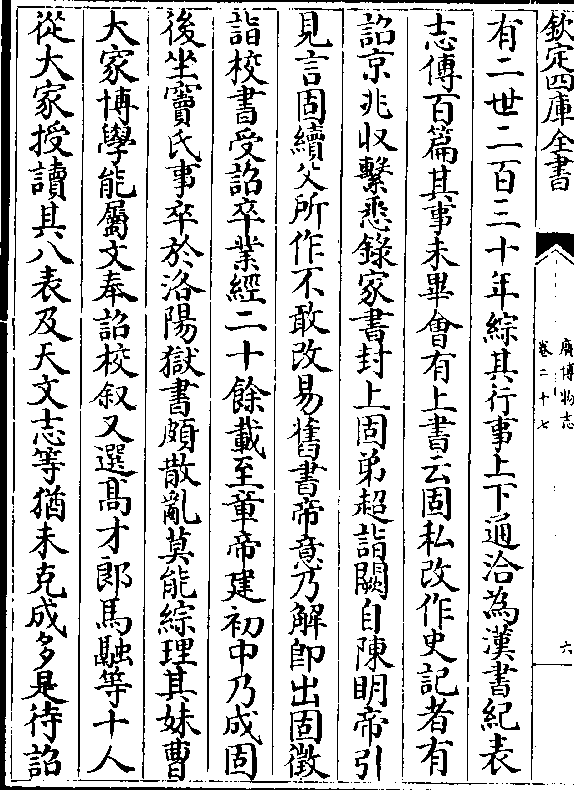 欽定四庫全書
廣博物志
卷二十七
六
有二世二百三十年綜其行事上下通洽為漢書紀表
志傳百篇其事未畢會有上書云固私改作史記者有
詔京兆収繫悉錄家書封上固弟超詣闕自陳明帝引
見言固續父所作不敢改易舊書帝意乃解即出固徵
詣校書受詔卒業經二十餘載至章帝建初中乃成固
後坐竇氏事卒於洛陽獄書頗散亂莫能綜理其妹曹
大家博學能屬文奉詔校叙又選髙才郎馬融等十人
從大家授讀其八表及天文志等猶未克成多是待詔